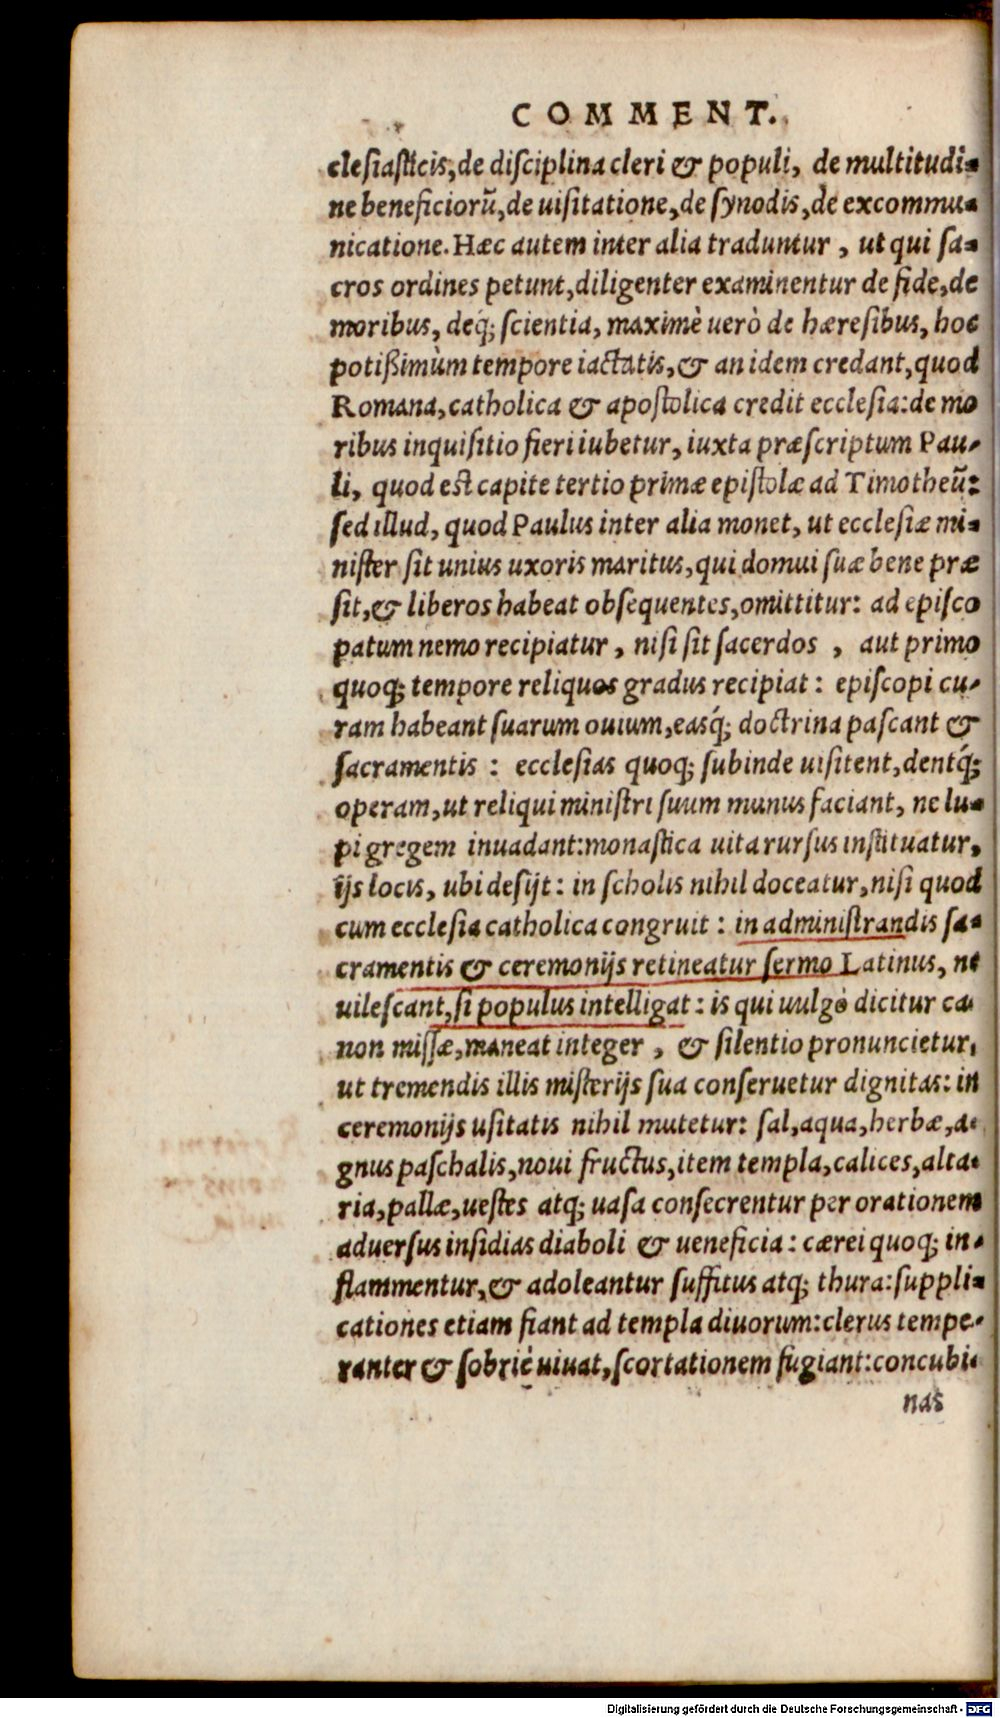 COMMENT.
clesiasticis, de disciplina cleri & populi, de multitudi-
ne beneficiorũ, de uisitatione, de synodis, de excommu-
nicatione. Hæc autem inter alia traduntur, ut qui sa-
cros ordines petunt, diligenter examinentur de fide, de
moribus, deq́; scientia, maximè uerò de hæresibus, hoc
potißimùm tempore iactatis, & an idem credant, quod
Romana, catholica & apostolica credit ecclesia: de mo
ribus inquisitio fieri iubetur, iuxta præscriptum Pau-
li, quod est capite tertio primæ epistolæ ad Timotheũ:
sed illud, quod Paulus inter alia monet, ut ecclesiæ mi-
nister sit unius uxoris maritus, qui domui suæ bene præ
sit, & liberos habeat obsequentes, omittitur: ad episco
patum nemo recipiatur, nisi sit sacerdos, aut primo
quoq; tempore reliquos gradus recipiat: episcopi cu-
ram habeant suarum ouium, easq́; doctrina pascant &
sacramentis: ecclesias quoq; subinde uisitent, dentq́;
operam, ut reliqui ministri suum munus faciant, ne lu-
pi gregem inuadant: monastica uita rursus instituatur,
ijs locis, ubi desijt: in scholis nihil doceatur, nisi quod
cum ecclesia catholica congruit: in administrandis sa-
cramentis & ceremonijs retineatur sermo Latinus, ne
uilescant, si populus intelligat: is qui uulgò dicitur ca-
non missæ, maneat integer, & silentio pronuncietur,
ut tremendis illis misterijs sua conseruetur dignitas: in
ceremonijs usitatis nihil mutetur: sal, aqua, herbæ, a-
gnus paschalis, noui fructus, item templa, calices, alta-
ria, pallæ, uestes atq; uasa consecrentur per orationem
aduersus insidias diaboli & ueneficia: cærei quoq; in-
flammentur, & adoleantur suffitus atq; thura: suppli-
cationes etiam fiant ad templa diuorum: clerus tempe-
ranter & sobriè uiuat, scortationem fugiant: concubi-
nas
Digitalisierung gefördert durch die Deutsche Forschungsgemeinschaft - DFG